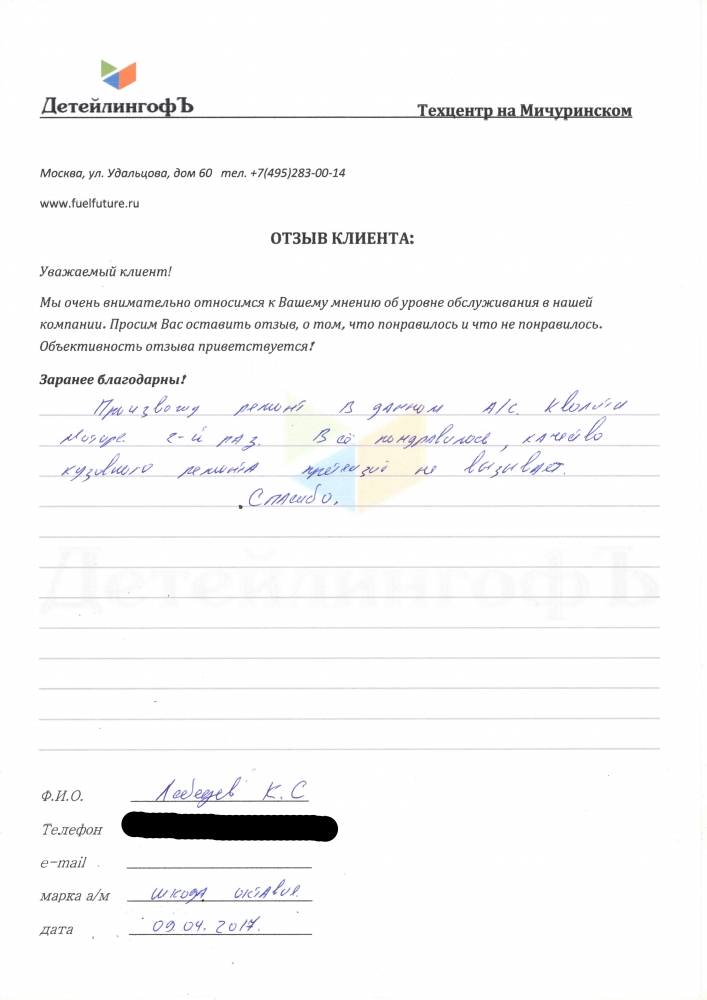 ДетейлингофЪ
Техцентр на Мичуринском
Москва, ул. Удальцова, дом 60 тел. +7(495)283-00-14
www.fuelfuture.ru
ОТЗЫВ КЛИЕНТА:
Уважаемый клиент!
Мы очень внимательно относимся к Вашему мнению об уровне обслуживания в нашей
компании. Просим Вас оставить отзыв, о том, что понравилось и что не понравилось.
Объективность отзыва приветствуется!
Заранее благодарны!
Произвожу ремонт в данном А/С. Кволити
Моторс 2-й раз. Всё пондравилось, качество
кузовного ремонта претензий не вызывает.
Спасибо.
ДетейлингофЪ
Ф.И.О. Лебедев К.С
Телефон
e-mail
марка а/м шкода октавия
дата 09.04.2017.